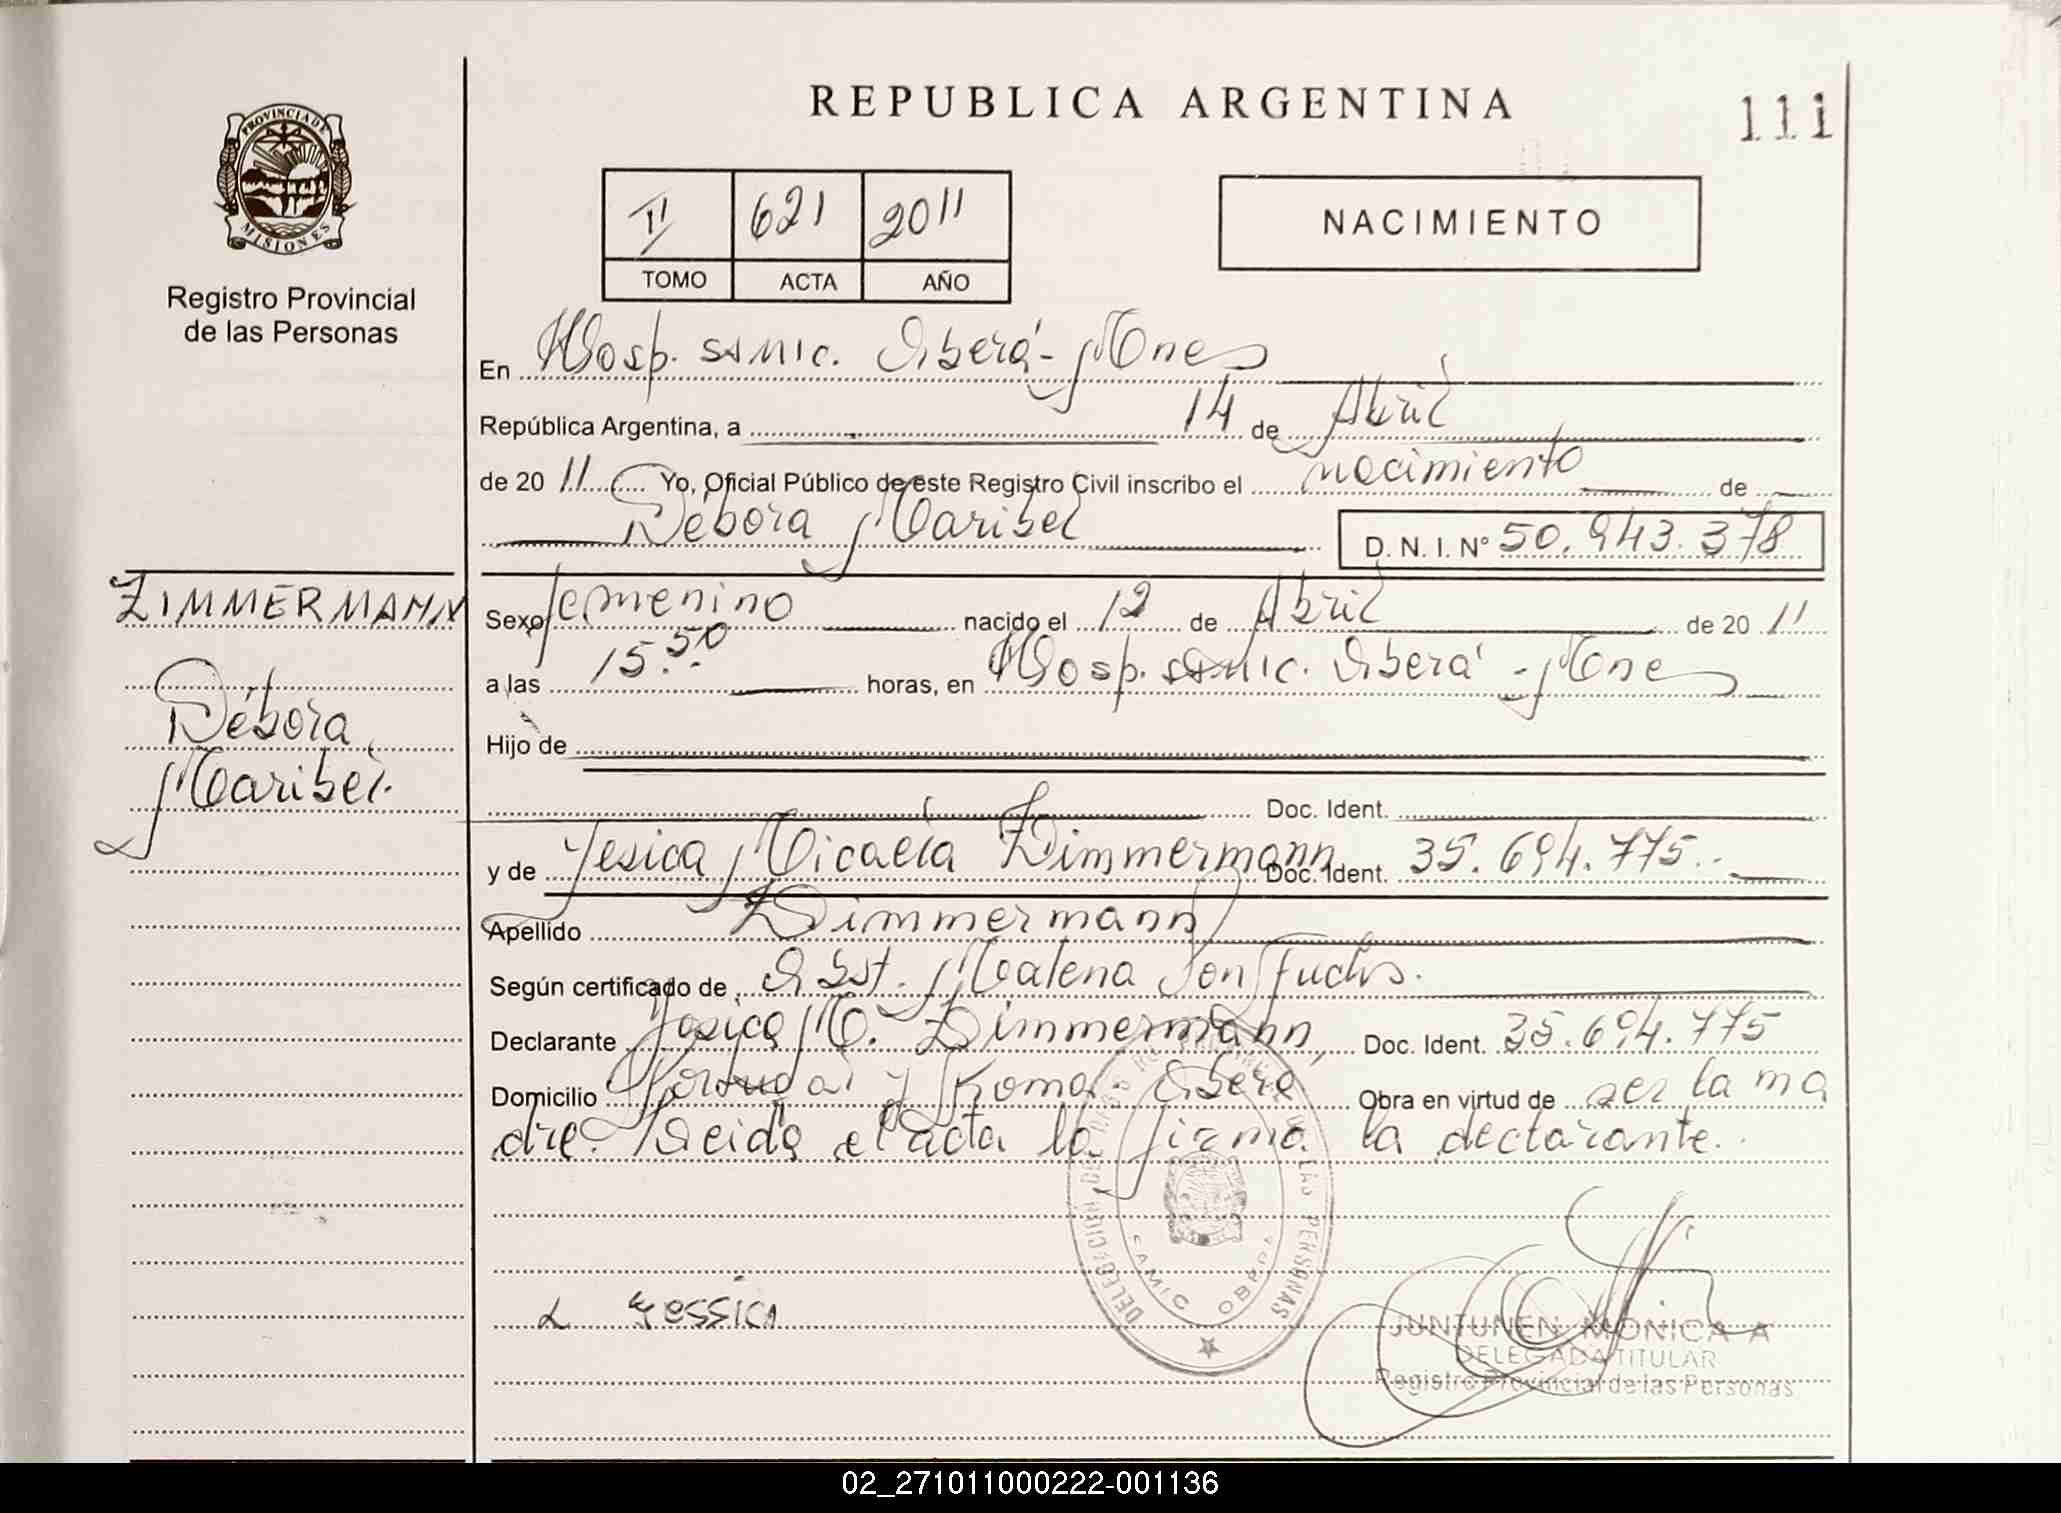 REPUBLICA ARGENTINA
111
PROVINCIA DE
MISIONES
Registro Provincial
de las Personas
II 621 2011
TOMO ACTA AÑO
NACIMIENTO
En Hosp. SAMIC. Oberá - Mnes
República Argentina, a 14 de Abril
de 20 11 Yo, Oficial Público de este Registro Civil inscribo el nacimiento de
Débora Maribel
D. N. I. N° 50.943.378
ZIMMERMANN
Débora
Maribel.
Sexo femenino nacido el 12 de Abril de 20 11
a las 15.50 horas, en Hosp. SAMIC. Oberá - Mnes
Hijo de
Doc. Ident.
y de Yesica Micaela Zimmermann Doc. Ident. 35.694.775.
Apellido Zimmermann
Según certificado de Obst. Malena Fuchs.
Declarante Yesica M. Zimmermann, Doc. Ident. 35.694.775
Domicilio Portugal y Roma - Oberá Obra en virtud de ser la ma
dre. Leida el acta la firma la declarante.
DELEGACION DEL REGISTRO PROVINCIAL DE LAS PERSONAS
SAMIC OBERA
Jessica
JUNTUNEN MONICA A
DELEGADA TITULAR
Registro Provincial de las Personas
02_271011000222-001136